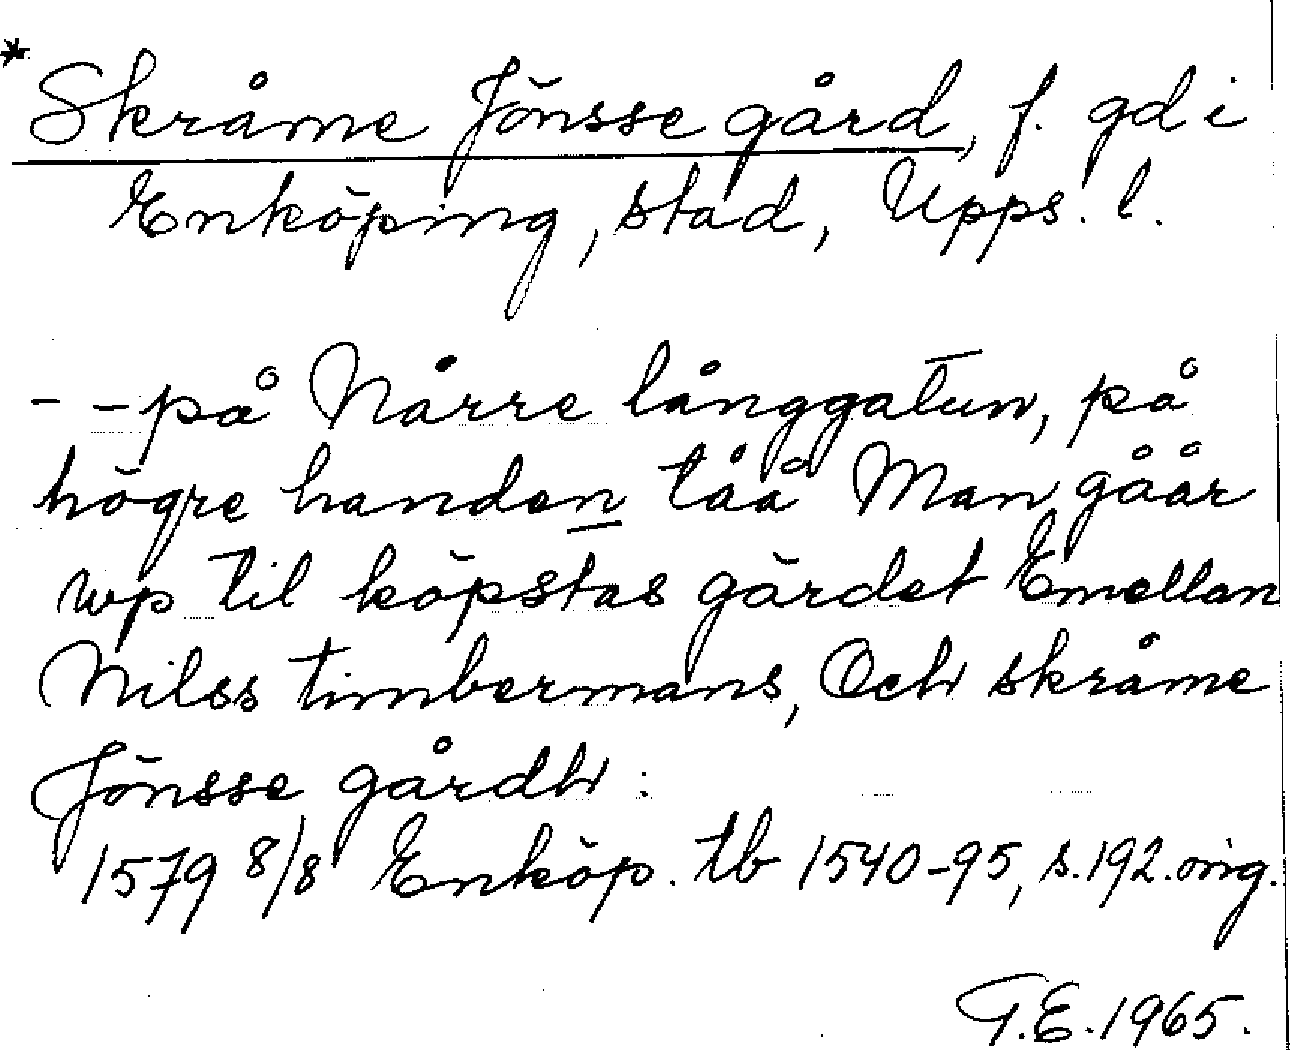 * Skråme Jönsse gård, f. gd i
Enköping, stad, Upps. l.
- - på Nårre långgatun, på
högre handen tåå Man gåår
wp til köpstas gärdet Emellan
Nilss timbermans, Och skråme
Jönsse gårdh :
1579 8/8 Enköp. tb 1540-95, s. 192. orig.
T.E. 1965.